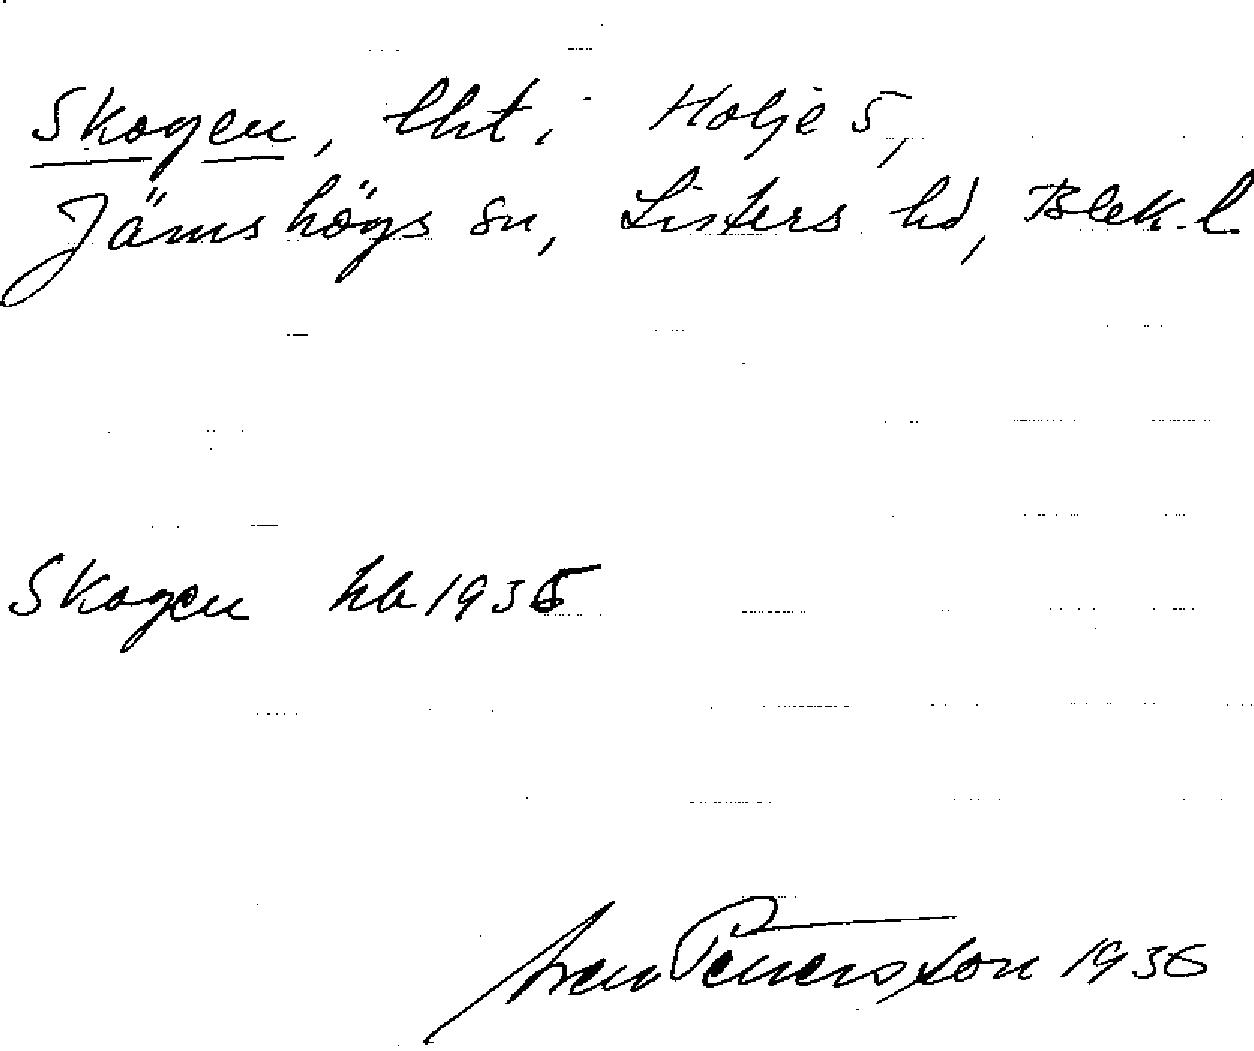 Skogen, lht, Holje 5,
Jämshögs sn, Listers hd, Blek. l.
Skogen hb 1935
Sven Pettersson 1936